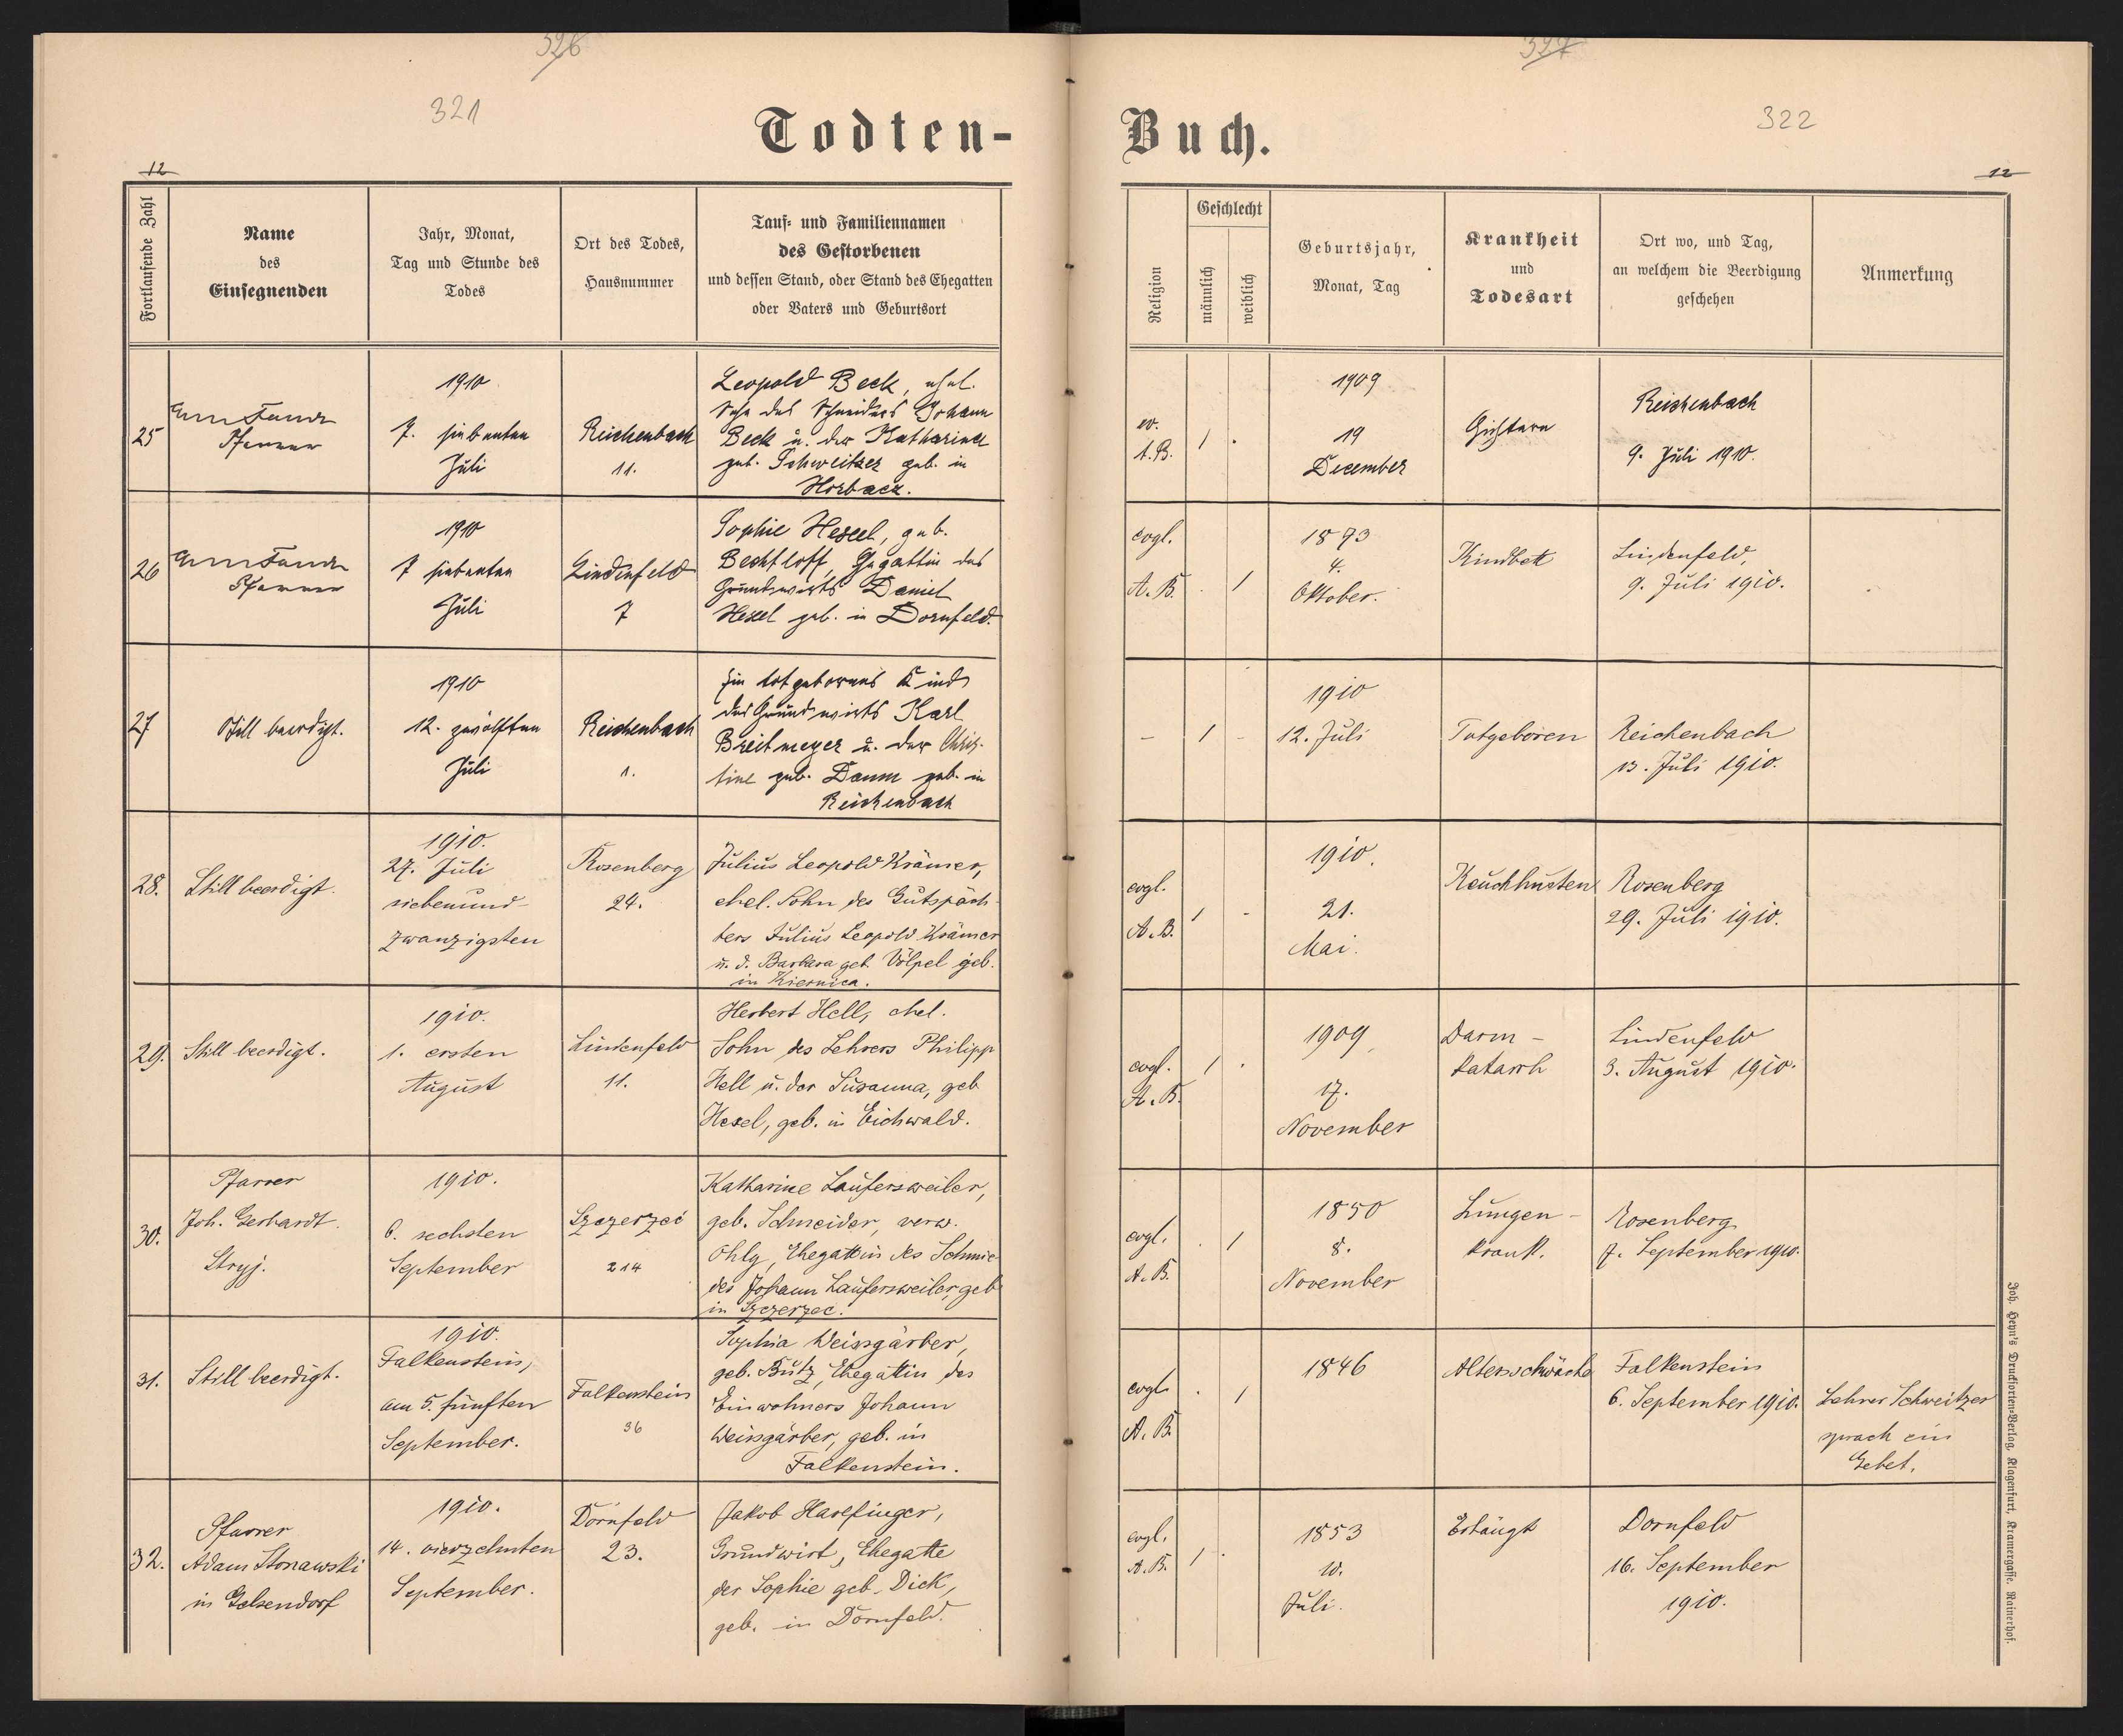 326
327
321
322
Todten-
Buch.
12
12
Fortlaufende Zahl
Name
des
Einsegnenden
Jahr, Monat,
Tag und Stunde des
Todes
Ort des Todes,
Hausnummer
Tauf- und Familiennamen
des Gestorbenen
und dessen Stand, oder Stand des Ehegatten
oder Vaters und Geburtsort
Religion
Geschlecht
männlich
weiblich
Geburtsjahr,
Monat, Tag
Krankheit
und
Todesart
Ort wo, und Tag,
an welchem die Beerdigung
geschehen
Anmerkung
25
Pfarrer
1910
7. siebenten
Juli
Reichenbach
11.
Leopold Beck, ehel.
Sohn des Schneiders Johann
Beck u. der Katharine
geb. Schweitzer geb. in
Horbacz.
ev.
A.B.
1
1909
19
December
Gichtern
Reichenbach
9. Juli 1910.
26
Pfarrer
1910
7 siebenten
Juli
Lindenfeld
7
Sophie Hexel, geb.
Bechtloff, Ehegattin des
Grundwirts Daniel
Hexel geb. in Dornfeld.
evgl.
A.B.
1
1893
4.
Oktober.
Kindbett
Lindenfeld,
9. Juli 1910.
27
Still beerdigt.
1910
12. zwölften
Juli
Reichenbach
1.
Ein totgeborenes Kind
des Grundwirts Karl
Breitmeyer u. der Chris-
tine geb. Daum geb. in
Reichenbach
–
1
–
1910
12. Juli
Totgeboren
Reichenbach
13. Juli 1910.
28.
Still beerdigt.
1910.
27. Juli
siebenund-
zwanzigsten
Rosenberg
24.
Julius Leopold Krämer,
ehel. Sohn des Gutspäch-
ters Julius Leopold Krämer
u. d. Barbara geb. Völpel geb.
in Kiernica.
evgl.
A.B.
1
-
1910.
21.
Mai.
Keuchhusten
Rosenberg
29. Juli 1910.
29.
Still beerdigt.
1910.
1. ersten
August
Lindenfeld
11.
Herbert Hell, ehel.
Sohn des Lehrers Philipp
Hell u. der Susanna, geb
Hexel, geb. in Eichwald.
evgl.
A.B.
1
1909
17.
November
Darm-
katarrh
Lindenfeld
3. August 1910.
30.
Pfarrer
Joh. Gerhardt.
Stryj.
1910.
6. sechsten
September
Szczerzec
214
Katharine Laufersweiler,
geb. Schneider, verw.
Ohlg, Ehegattin des Schmie
des Johann Laufersweiler, geb
in Szczerzec.
evgl.
A.B.
1
1850
8.
November
Lungen-
krank.
Rosenberg
7. September 1910.
31.
Still beerdigt.
1910.
Falkenstein,
am 5. fünften
September.
Falkenstein
36
Sophia Weissgärber,
geb. Butz, Ehegattin des
Einwohners Johann
Weissgärber, geb. in
Falkenstein.
evgl.
A.B.
1
1846
Altersschwäche
Falkenstein
6. September 1910.
Lehrer Schweitzer
sprach ein
Gebet.
32.
Pfarrer
Adam Stonawski
in Gelsendorf
1910.
14. vierzehnten
September.
Dornfeld
23.
Jakob Harlfinger,
Grundwirt, Ehegatte
der Sophie geb. Dick,
geb. in Dornfeld.
evgl.
A.B.
1
1853
10.
Juli.
Erhängt
Dornfeld
16. September
1910.
Joh. Heyn's Drucksorten-Verlag, Klagenfurt, Kramergasse. Rainerhof.